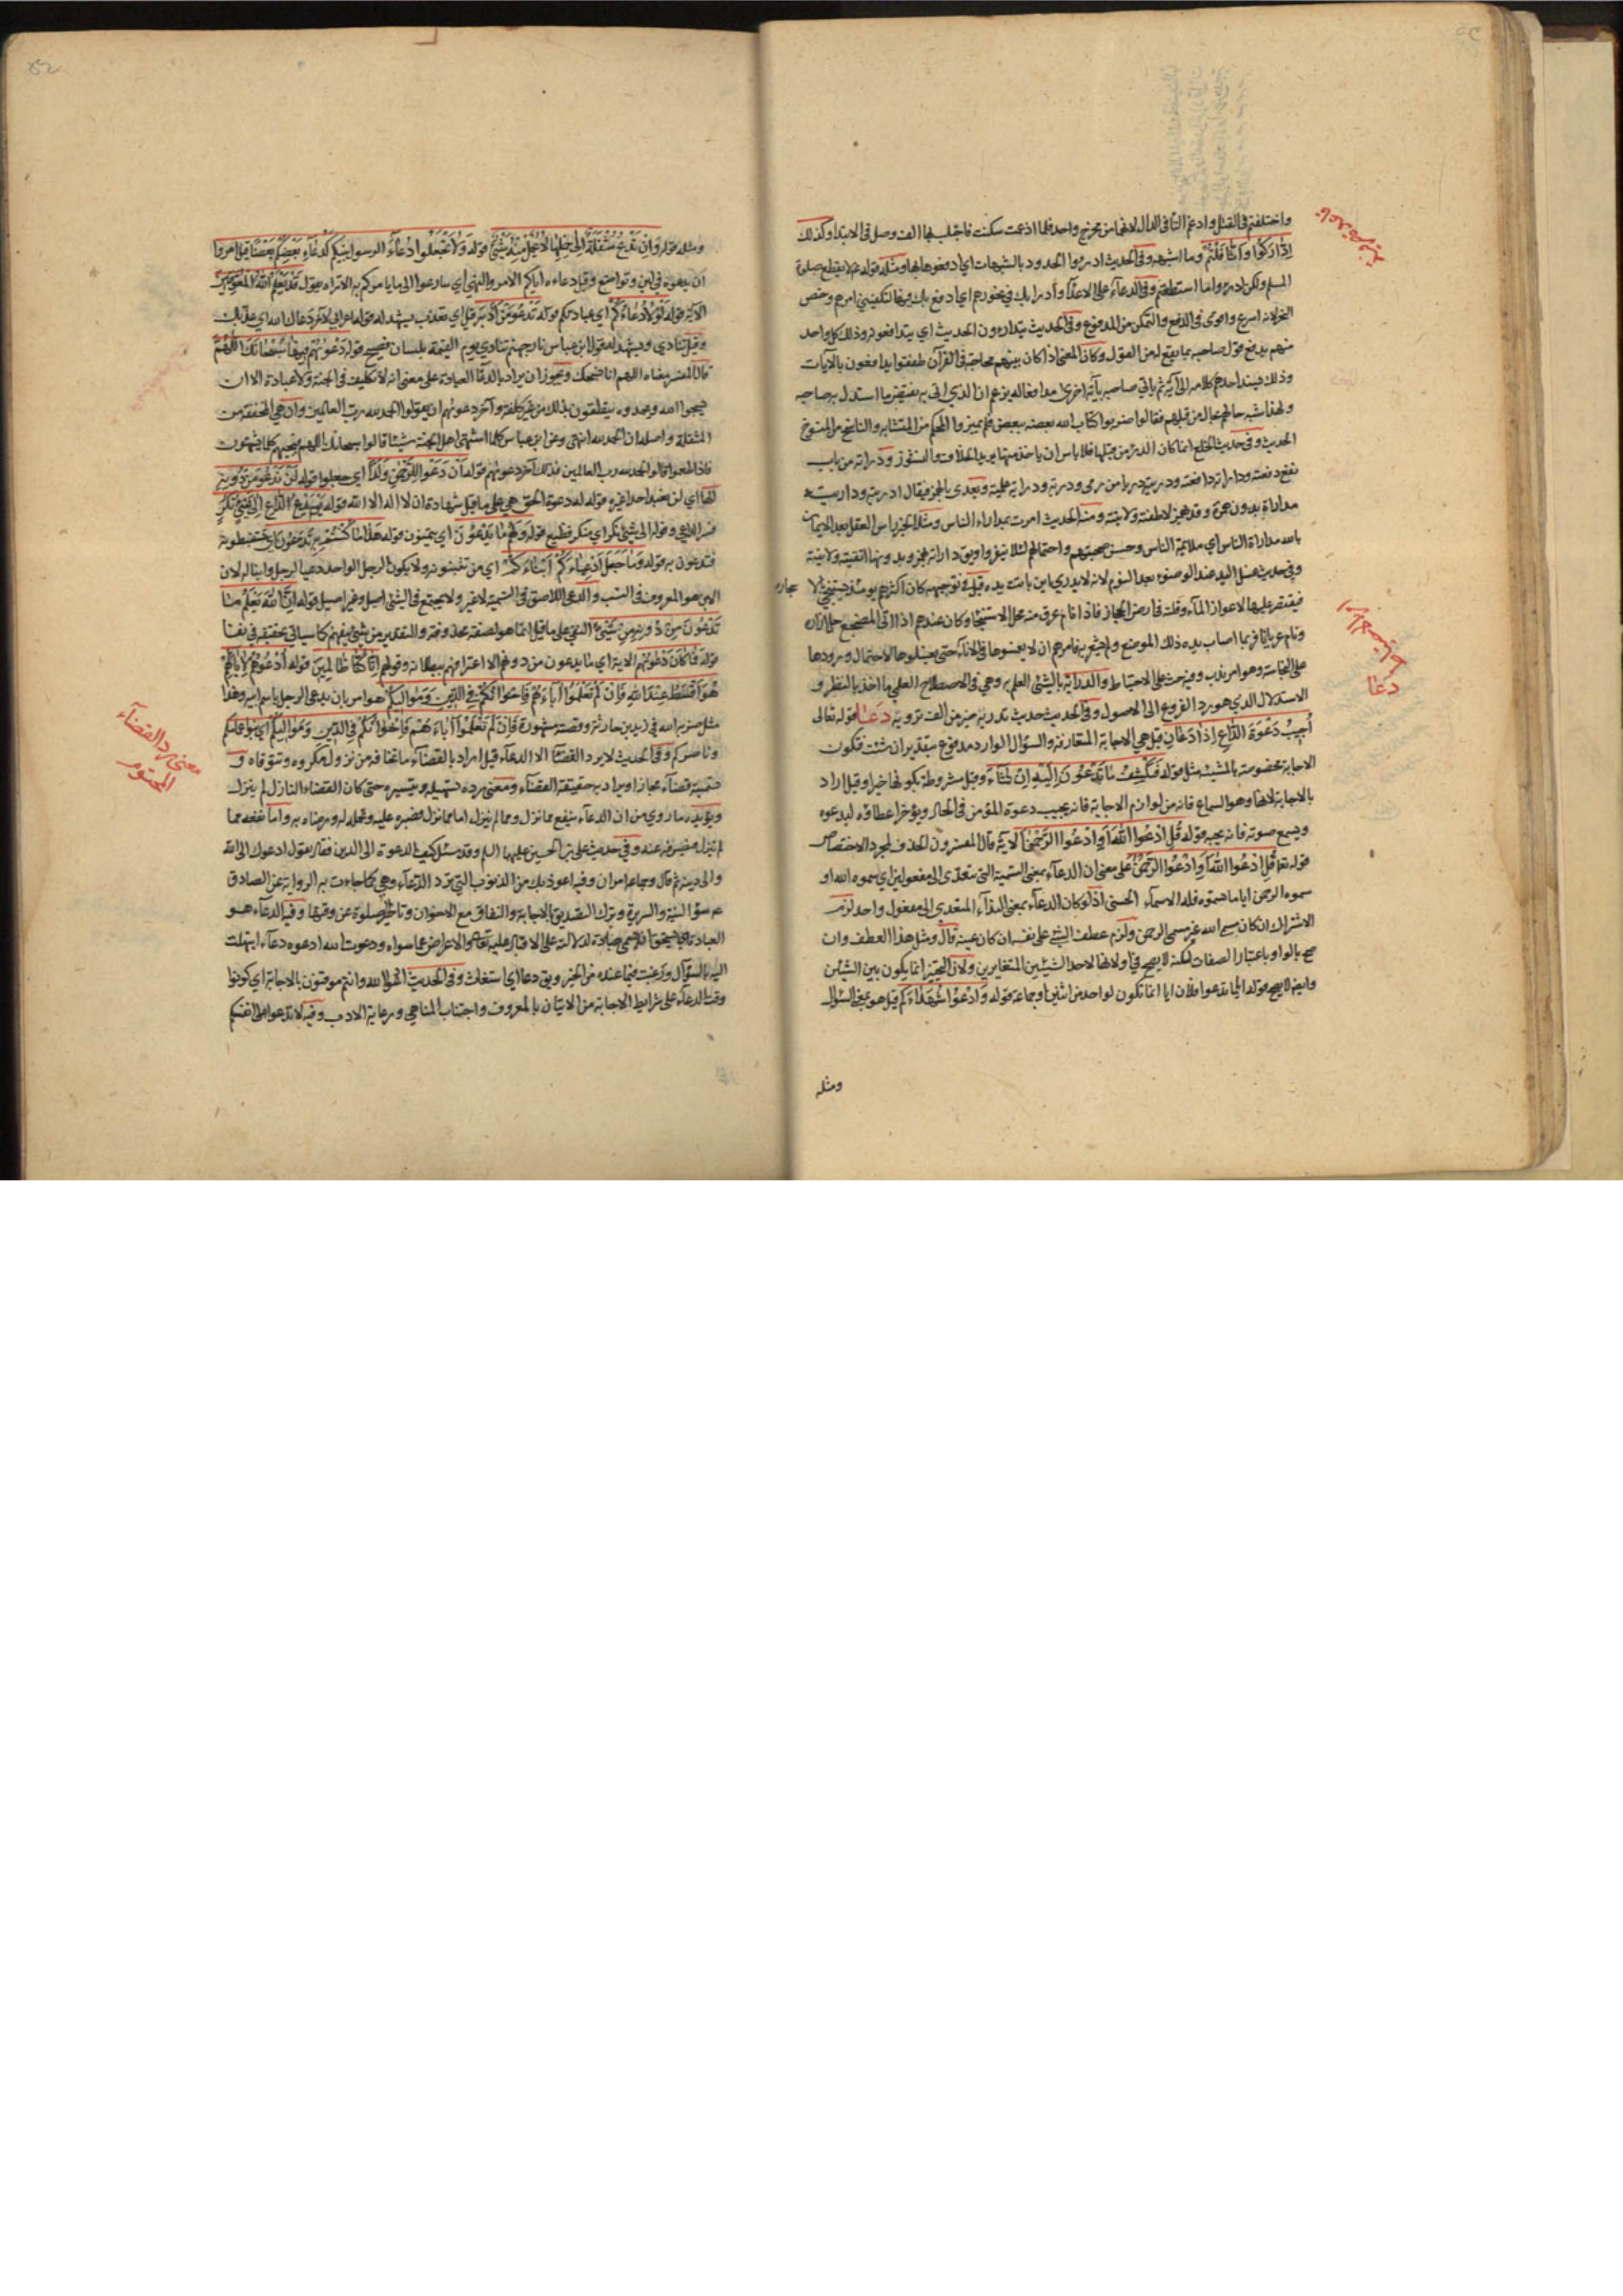 واختلفتم في القتل وادغم التا في الدال لانهما من مخرج واحد فلما ادغمت سكنت فاجتلب لها الف وصل في الابتدا وكذلك
اذا اداركوا واثاقلتم وما اشبهه وفي الحديث ادرؤا الحدود بالشبهات اي ادفعوها بها ومثله قوله لا يقطع صلوة
المسلم ولكن ادرؤا ما استطعتم وفي الدعاء على الاعداء وأدرأ بك في نحورهم اي ادفع بك فيها لتكفيني امرهم وخص
النحر لانه اسرع واقوى في الدفع والتمكن من المدفوع وفي الحديث يتدارءون الحديث اي يتدافعونه وذلك كل واحد
منهم يدفع قول صاحبه بما يقع له من القول وكان المعنى اذا كان بينهم محاجة في القرآن طفقوا يدافعون بالآيات
وذلك فيسند احدهم كلامه الى آية ثم ياتي صاحبه بآية اخرى مدافعا له يزعم ان الذي اتى به نقيض ما استدل به صاحبه
ولهذا شبه حالهم بحال من قبلهم فقالوا ضربوا كتاب الله بعضه ببعض فلم يميزوا المحكم من المتشابه والناسخ من المنسوخ
الحديث وفي حديث الخلع اذا كان الدرء من قبلها فلا باس ان ياخذ منها يريد الخلاف والنشوز ودرأته من باب
نفع دفعته ودارأته دافعته ودريته دريا من رمى ودرية ودراية علمته ويعدى بالهمز فيقال ادريته وداريته
مداراة بدون همزة وقد همز لاطفته ولاينته ومنه الحديث امرت بمداراة الناس ومثله الخبر راس العقل بعد الايمان
بالله مداراة الناس اي ملايمة الناس وحسن صحبتهم واحتمالهم لئلا ينفروا ويق داراته بهمز وبدونها اتقيته ولاينته
وفي حديث غسل اليد عند الوضوء بعد النوم لانه لا يدري اين باتت يده قيل في توجيهه كان اكثرهم يومئذ يستنجي بالاحجار
فيقتصر عليها لاعواز الماء وقلته في ارض الحجاز فاذا نام عرق منه محل الاستنجا وكان عندهم اذا اتى المضجع حل ازاره
ونام عريانا فربما اصاب يده ذلك الموضع ولم يشعر به فامرهم ان لا يغمسوها في الاناء حتى يغسلوها لاحتمال ورودها
على النجاسة وهو امر ندب وفيه حث على الاحتياط والدراية بالشئ العلم به وهي في الاصطلاح العلمي ما اخذ بالنظر و
الاستدلال الذي هو رد الفروع الى الاصول وفي الحديث حديث تدريه خير من الف ترويه دعا قوله تعالى
أجيب دعوة الداع اذا دعان قيل هي الاجابة المتعارفة والسؤال الوارد مدفوع بتقدير ان شئت فتكون
الاجابة مخصوصة بالمشيئة مثل قوله فيكشف ما تدعون إليه إن شاء وقيل مشروطة بكونها خيرا وقيل اراد
بالاجابة لازمها وهو السماع فانه من لوازم الاجابة فانه يجيب دعوة المؤمن في الحال ويؤخر اعطاؤه ليدعوه
ويسمع صوته فانه يحبه قوله قل ادعوا الله أو ادعوا الرحمن الآية قال المفسرون الحذف لمجرد الاختصار
قوله تعا قل ادعوا الله أو ادعوا الرحمن على معنى ان الدعاء بمعنى التسمية التي تتعدى الى مفعولين اي سموه الله او
سموه الرحمن اياما سميتموه فله الاسماء الحسنى اذ لو كان الدعاء بمعنى النداء المتعدي الى مفعول واحد لزم
الاشتراك ان كان مسمى الله غير مسمى الرحمن ولزم عطف الشئ على نفسه ان كان عينه قال ومثل هذا العطف وان
صح بالواو باعتبار الصفات لكنه لا يصح في او لانها لاحد الشيئين المتغايرين ولان التخيير انما يكون بين الشيئين
وايضا لا يصح قوله ايا ما تدعوا فلان ايا انما تكون لواحد من اثنين او جماعة قوله وادعوا شهداءكم قيل هو بمعنى السؤال
ومثله
دعا
ومثله قوله وإن تدع مثقلة إلى حملها لا يحمل منه شئ قوله ولا تجعلوا دعاء الرسول بينكم كدعاء بعضكم بعضا قيل امروا
ان يدعوه في لين وتواضع وقيل دعاءه اياكم الامر والنهي اي سارعوا الى ما يامركم به الا تراه يقول قد يعلم الله المعوقين
الآية قوله لولا دعاؤكم اي عبادتكم قوله تدعو من أدبر قيل اي تعذب يشهد له قول اعرابي لآخر دعاك الله اي عذبك
وقيل تنادي ويشهد له قول ابن عباس نار جهنم تنادي يوم القيمة بلسان فصيح قوله دعويهم فيها سبحانك اللهم
قال المفسر معناه اللهم انا نسبحك ويجوز ان يراد بالدعا العبادة على معنى انه لا تكليف في الجنة ولا عبادة الا ان
يسبحوا الله ويحمدوه ينطقون بذلك من غير كلفة وآخر دعويهم ان يقولوا الحمد لله رب العالمين وان هي المخففة من
المثقلة واصله انه الحمد لله انتهى وعن ابن عباس كلما اشتهى اهل الجنة شيئا قالوا سبحانك اللهم فيجيبهم كلما يشتهون
فاذا طعموا قالوا الحمد لله رب العالمين فذلك آخر دعويهم قوله أن دعوا للرحمن ولدا اي جعلوا قوله لن ندعو من دونه
إلها اي لن نعبد احدا غيره قوله له دعوة الحق هي على ما قيل شهادة ان لا اله الا الله قوله يوم يدع الداع إلى شئ نكر
فسر الداعي وقوله الى شئ نكر اي منكر فظيع قوله ولهم ما يدعون اي يتمنون قوله هذا الذي كنتم به تدعون اي تستبطئونه
فتدعون به قوله وما جعل أدعياءكم أبناءكم اي من تتبنونه ولا يكون الرجل الواحد دعيا لرجل وابنا له لان
الابن هو المعروف في النسب والدعي اللاصق في التسمية لا غير ولا يجتمع في الشئ اصيل وغير اصيل قوله إن الله يعلم ما
تدعون من دونه من شئ
قوله فما كان دعويهم الآية اي ما يدعون من دونهم الا اعترافهم ببطلانه وقولهم إنا كنا ظالمين قوله أدعوهم لآبائهم
هو أقسط عند الله فإن لم تعلموا آباءهم فإخوانكم في الدين ومواليكم هو امر بان يدعى الرجل باسم ابيه وهذا
مثل ضربه الله في زيد بن حارثة وقصته مشهورة فإن لم تعلموا آباءهم فإخوانكم في الدين ومواليكم اي بنو اعمامكم
وناصروكم وفي الحديث لا يرد القضاء الا الدعاء قيل اراد بالقضاء ما تخافه من نزول مكروه وتتوقاه و
تسميته قضاء مجازا ويراد به حقيقة القضاء ومعنى رده تسهيله وتيسيره حتى كان القضاء النازل لم ينزل
ويؤيده ما روي من ان الدعاء ينفع مما نزل ومما لم ينزل اما مما نزل فصبره عليه وتحمله له ورضاه به واما نفعه مما
لم ينزل فيصرفه عنه وفي حديث علي بن الحسين عليهما السلم وقد سئل كيف الدعوة الى الدين فقال يقول ادعوك الى الله
والى دينه ثم قال وجماعه امران وفيه اعوذ بك من الذنوب التي ترد الدعاء وهي كما جاءت به الرواية عن الصادق
ع سوء النية والسريرة وترك التصديق بالاجابة والنفاق مع الاخوان وتاخير الصلوة عن وقتها وفيه الدعاء هو
العبادة اي يستحق ان يسمى عبادة لدلالته على الاقبال عليه تعالى والاعراض عما سواه ودعوت الله ادعوه دعاء ابتهلت
اليه بالسؤال ورغبت فيما عنده من الخير ويق دعا اي استغاث وفي الحديث ادعوا الله وانتم موقنون بالاجابة اي كونوا
وقت الدعاء على شرايط الاجابة من الاتيان بالمعروف واجتناب المناهي ورعاية الادب وفيه لا تدعوا على انفسكم
معنى رد القضآء
المحتوم